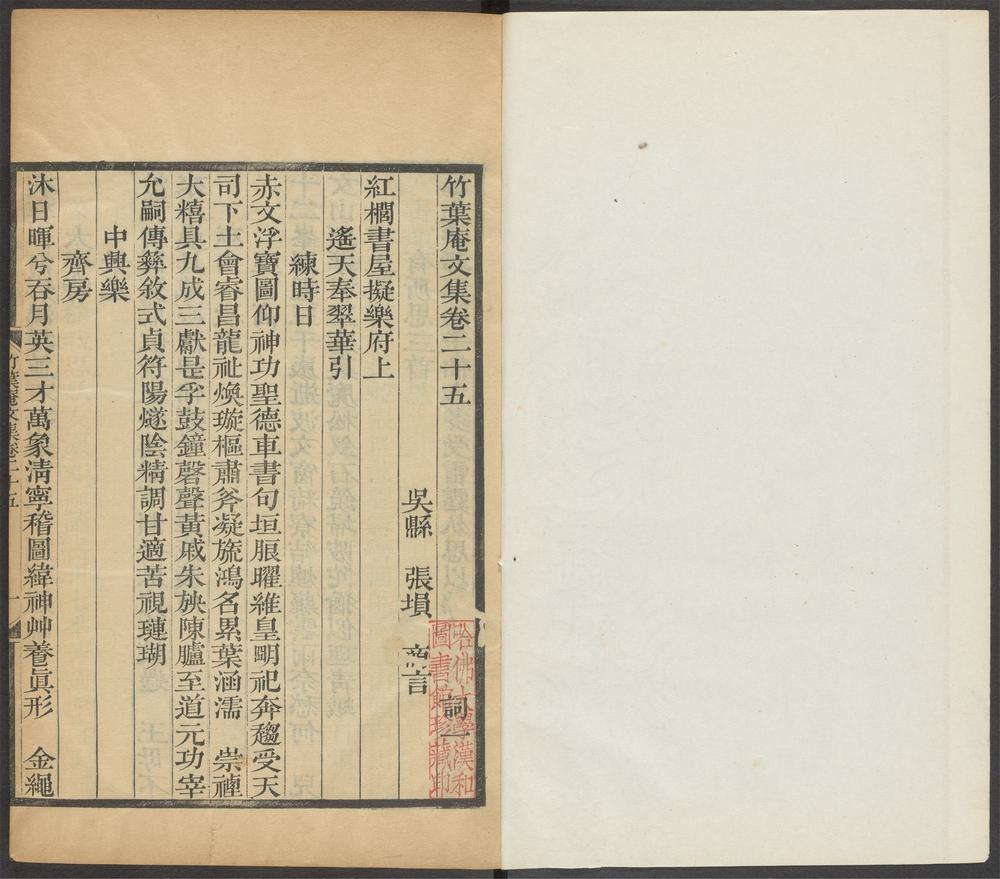 竹葉庵文集卷二十五
吳縣 張塤 商言
詞一
紅櫚書屋擬樂府上
遙天奉翠華引
練時日
赤文浮寶圖仰神功聖德車書句垣脤曜維皇明祀奔趨受天
司下土會睿昌龍祉煥璇樞肅斧凝旒鴻名累葉涵濡 崇禋
大糦具九成三獻昰孚鼓鐘磬聲黃戚朱殃陳臚至道元功宰
允嗣傳彝敘式貞符陽燧陰精調甘適苦視璉瑚
中興樂
齊房
沐日暉兮吞月英三才萬象淸寧稽圖緯神艸養眞形 金繩
竹葉庵文集卷二十五
一
哈佛大學漢和
圖書館珍藏印